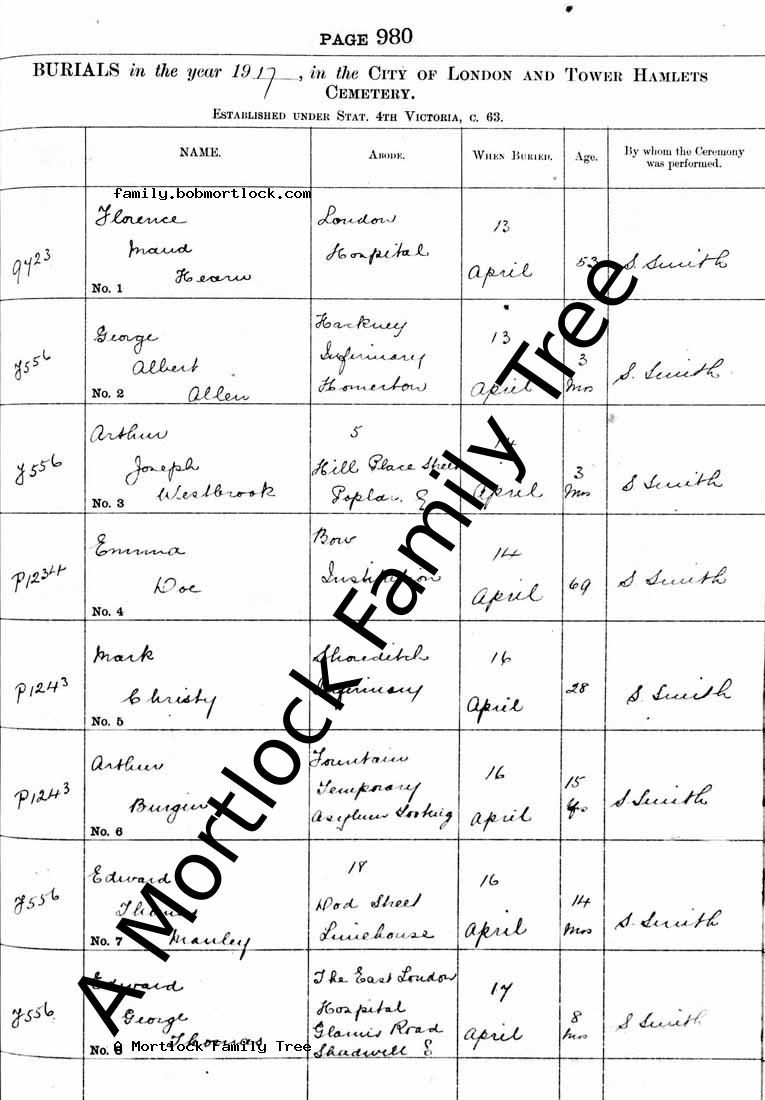 PAGE 980
BURIALS in the year 1917, in the CITY OF LONDON AND TOWER HAMLETS
CEMETERY.
ESTABLISHED UNDER STAT. 4TH VICTORIA, C. 63.
NAME. ABODE. WHEN BURIED. Age. By whom the Ceremony
was performed.
family.bobmortlock.com
9423 Florence London 13
Maud Hospital April 53 S. Smith
Hearn
No. 1
J556 George Hackney 13 3
Albert Infirmary April Mos S. Smith
No. 2 Allen Homerton
J556 Arthur 5 14 3
Joseph Hill Place Street April Mos S Smith
No. 3 Westbrook Poplar. E
P1234 Emma Bow 14
Doe Institution April 69 S Smith
No. 4
P1243 Mark Shoreditch 16 28
Christy Infirmary April S. Smith
No. 5
P1243 Arthur Fountain 16 15
Burgin Temporary April Yrs S Smith
No. 6 Asylum Tooting
J556 Edward 18 16 14
Thomas Dod Street April Mos S. Smith
No. 7 Manley Limehouse
J556 Edward The East London 17 8
George Hospital April Mos S Smith
No. 8 Thomas Glamis Road
Shadwell E
A Mortlock Family Tree
A Mortlock Family Tree